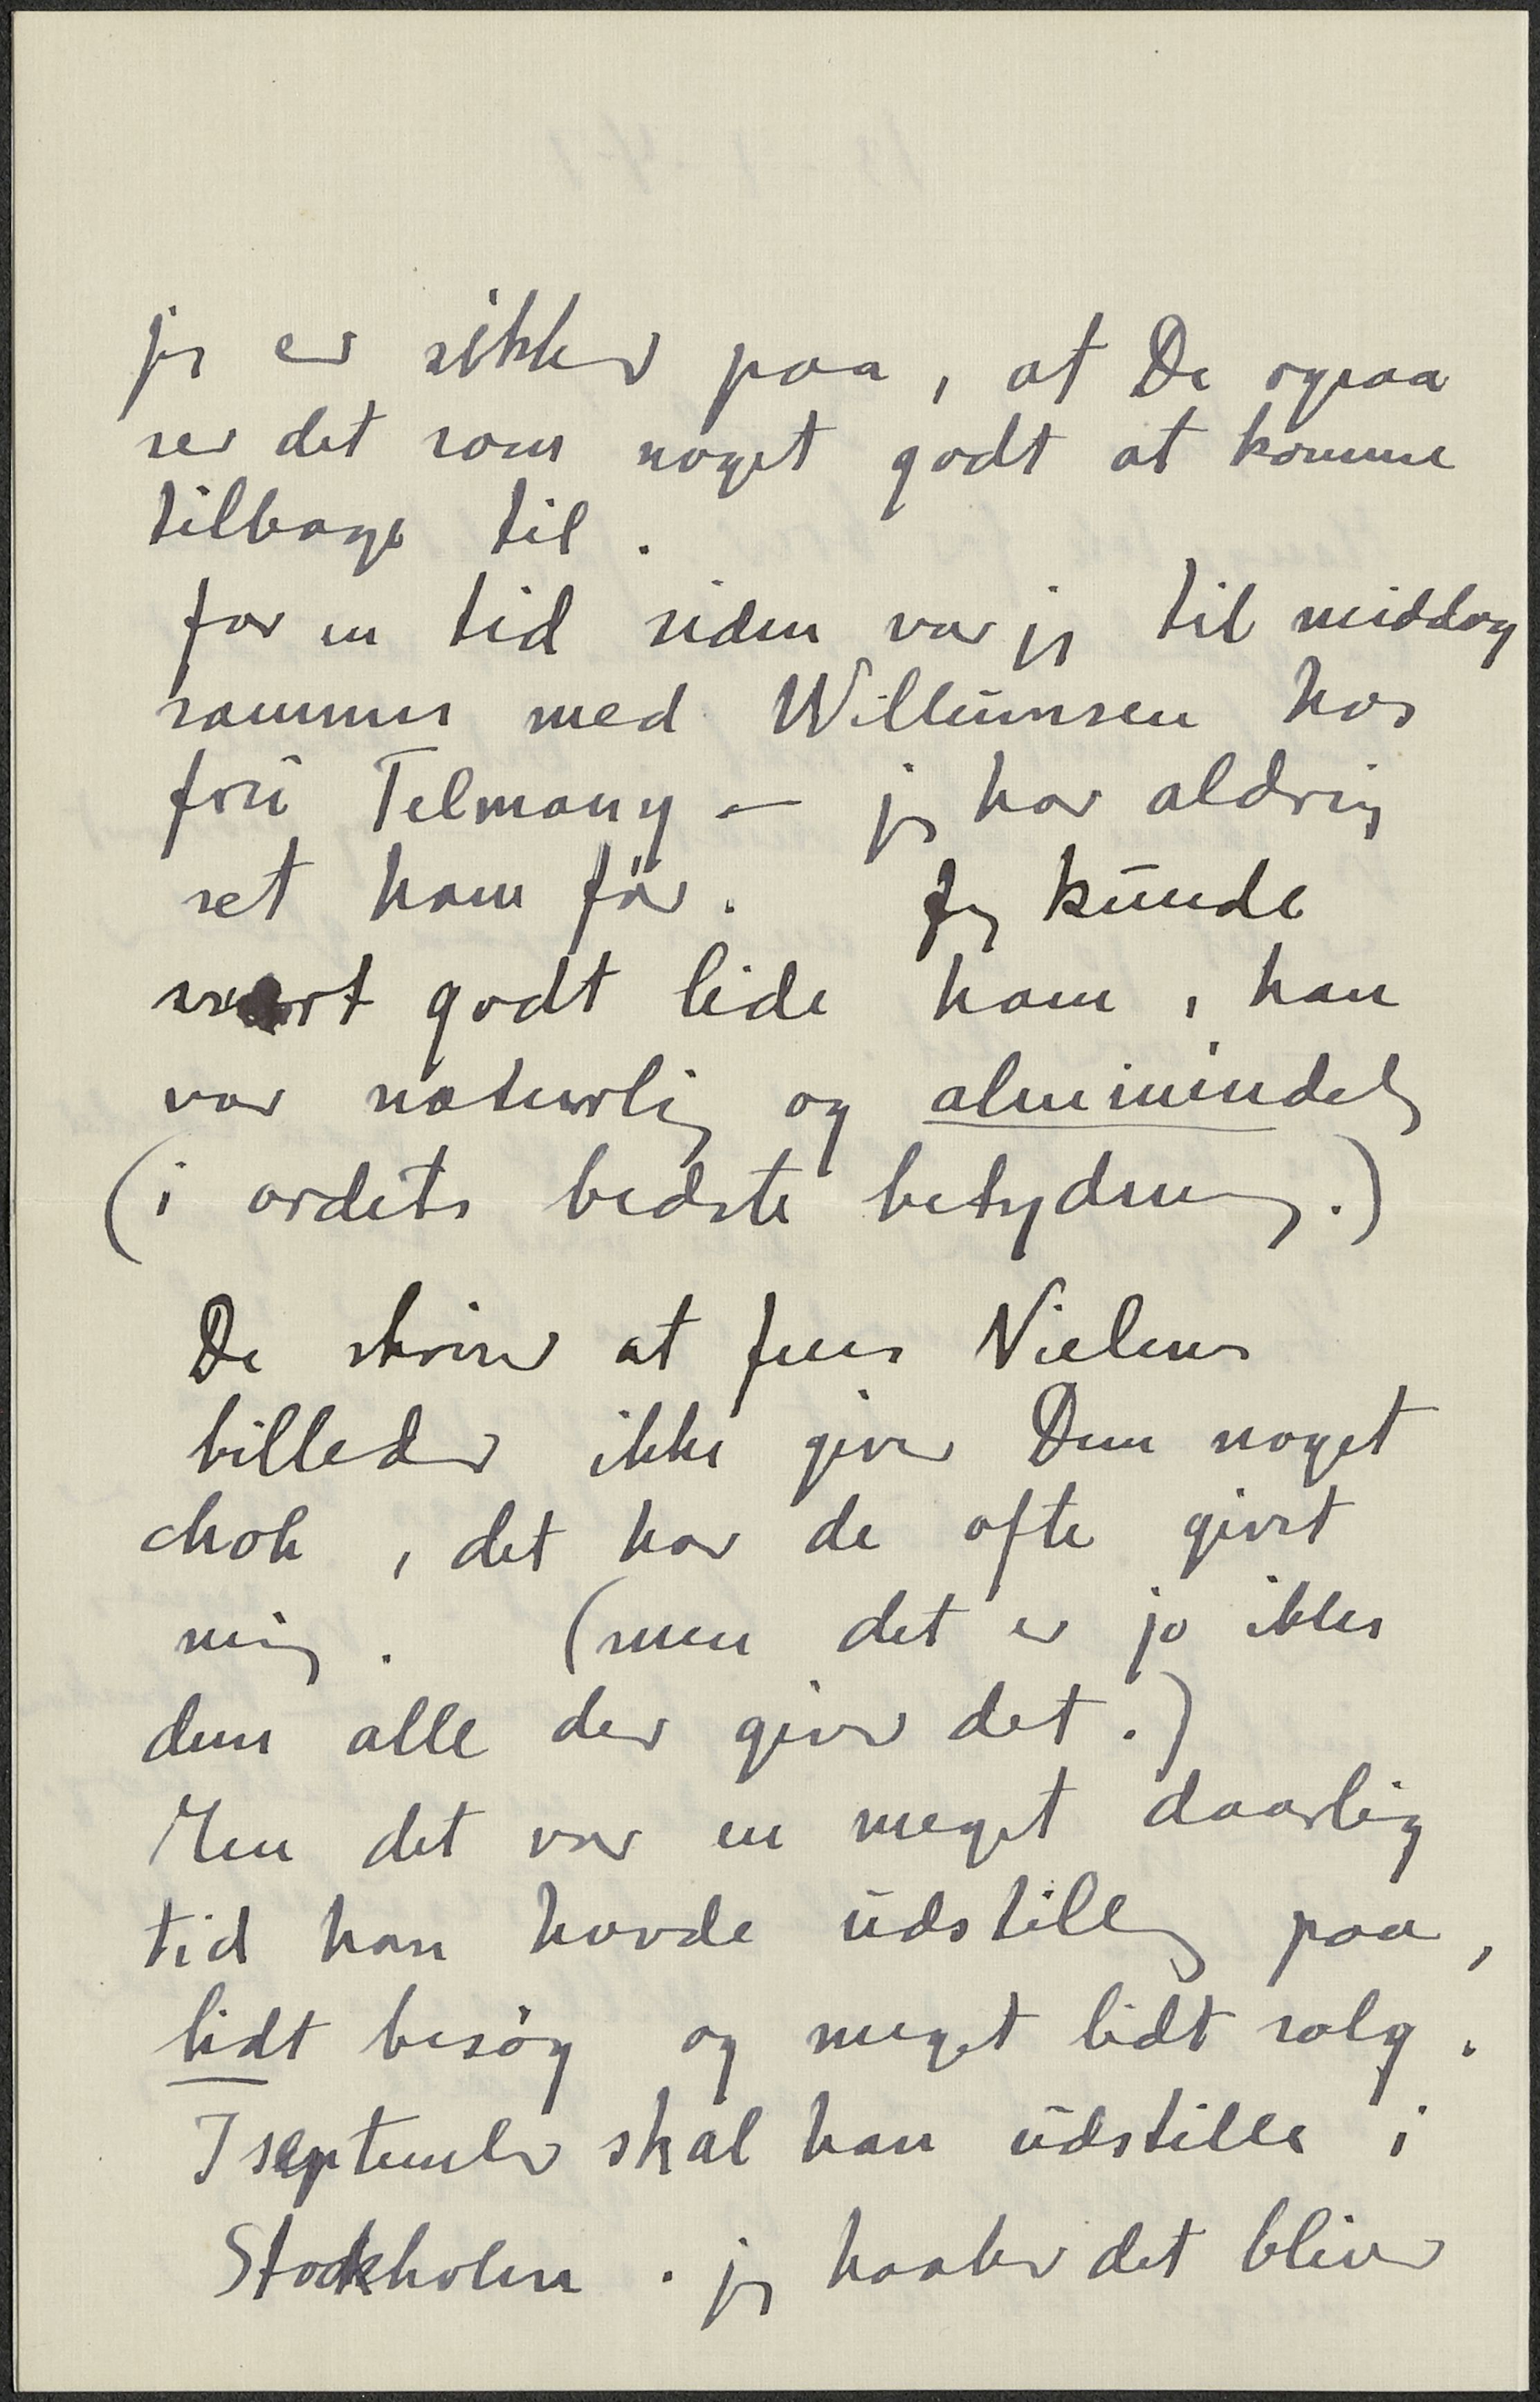 jeg er sikker paa, at De ogsaa
ser det som noget godt at komme
tilbage til.
for en tid siden var jeg til middag
sammen med Willumsen hos
fru Telmany – jeg har aldrig
set ham før. Jeg kunde
svært godt lide ham, han
var naturlig og almindelig
(i ordets bedste betydning.)
De skriver at Jens Nielsens
billeder ikke giver Dem noget
chok, det har de ofte givet
mig. (men det er jo ikke
dem alle der giver det.)
Men det var en meget daarlig
tid han havde udstilling paa,
lidt besøg og meget lidt salg.
I september skal han udstille i
Stockholm. jeg haaber det bliver